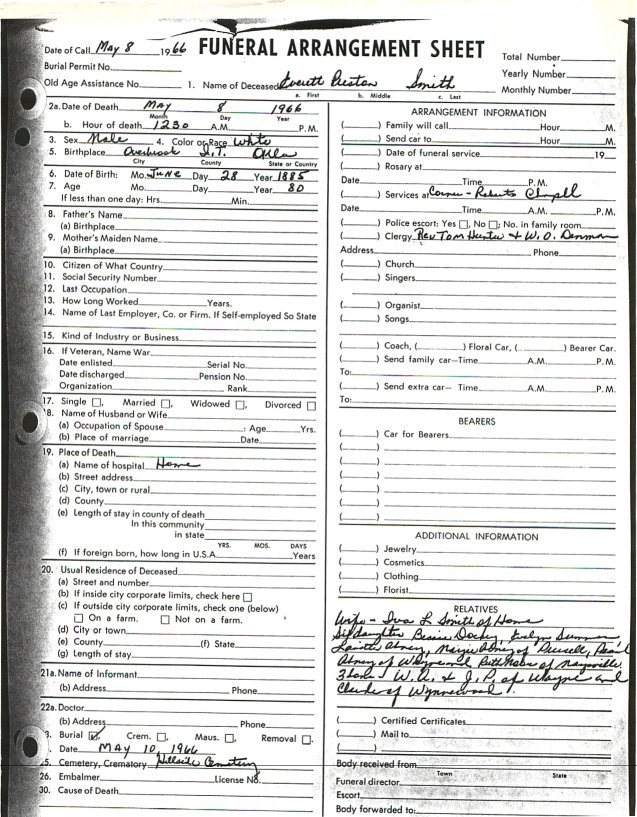 FUNERAL ARRANGEMENT SHEET
Date of Call May 8 1966
Burial Permit No.
Old Age Assistance No.
Total Number
Yearly Number
Monthly Number
1. Name of Deceased Everett Preston Smith
a. First b. Middle c. Last
2a. Date of Death May 8 1966
Month Day Year
b. Hour of death 1230 A.M. P.M.
3. Sex Male 4. Color or Race White
5. Birthplace Overbrook I.T. Okla
City County State or Country
6. Date of Birth: Mo. June Day 28 Year 1885
7. Age Mo. Day Year 80
If less than one day: Hrs. Min.
8. Father's Name
(a) Birthplace
9. Mother's Maiden Name
(a) Birthplace
10. Citizen of What Country
11. Social Security Number
12. Last Occupation
13. How Long Worked Years.
14. Name of Last Employer, Co. or Firm. If Self-employed So State
15. Kind of Industry or Business
16. If Veteran, Name War
Date enlisted Serial No.
Date discharged Pension No.
Organization Rank
17. Single ☐, Married ☐, Widowed ☐, Divorced ☐
18. Name of Husband or Wife
(a) Occupation of Spouse : Age Yrs.
(b) Place of marriage Date
19. Place of Death
(a) Name of hospital Home
(b) Street address
(c) City, town or rural
(d) County
(e) Length of stay in county of death
In this community
in state
YRS. MOS. DAYS
(f) If foreign born, how long in U.S.A. Years
20. Usual Residence of Deceased
(a) Street and number
(b) If inside city corporate limits, check here ☐
(c) If outside city corporate limits, check one (below)
☐ On a farm. ☐ Not on a farm.
(d) City or town
(e) County (f) State
(g) Length of stay
21a. Name of Informant
(b) Address Phone
22a. Doctor
(b) Address Phone
3. Burial ☑, Crem. ☐, Maus. ☐, Removal ☐.
Date MAY 10, 1966
5. Cemetery, Crematory Hillside Cemetery
26. Embalmer License No.
30. Cause of Death
ARRANGEMENT INFORMATION
( ) Family will call Hour M.
( ) Send car to Hour M.
( ) Date of funeral service 19
( ) Rosary at
Date Time P.M.
( ) Services at Corner-Roberts Chapell
Date Time A.M. P.M.
( ) Police escort: Yes ☐, No ☐; No. in family room
( ) Clergy Rev Tom Hunter & W.O. Denman
Address Phone
( ) Church
( ) Singers
( ) Organist
( ) Songs
( ) Coach, ( ) Floral Car, ( ) Bearer Car.
( ) Send family car—Time A.M. P.M.
To:
( ) Send extra car— Time A.M. P.M.
To:
BEARERS
( ) Car for Bearers
( )
( )
( )
( )
( )
( )
ADDITIONAL INFORMATION
( ) Jewelry
( ) Cosmetics
( ) Clothing
( ) Florist
RELATIVES
Wife - Iva L Smith of Home
Stepdaughter Bessie Evelyn
Abney, Abney of Purcell, Pearl
Abney of Wynnewood Ruth of Maysville
3 Sons W.A. & J.P. of Wayne and
Claude of Wynnewood.
( ) Certified Certificates
( ) Mail to
( )
Body received from
Town State
Funeral director
Escort
Body forwarded to: